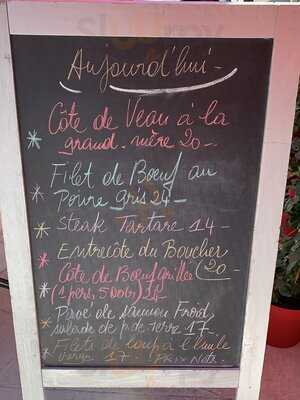 Aujourd'hui -
Côte de Veau à la
grand-mère 20 -
Filet de Boeuf au
Poivre Gris 24 -
Steak Tartare 14 -
Entrecôte du Boucher
Côte de Boeuf grillée (20 -
(1 pers,
de saumon Froid,
salade de p. de terre 17 -
Filets de loup à l'huile
vierge 17 - Prix Nets